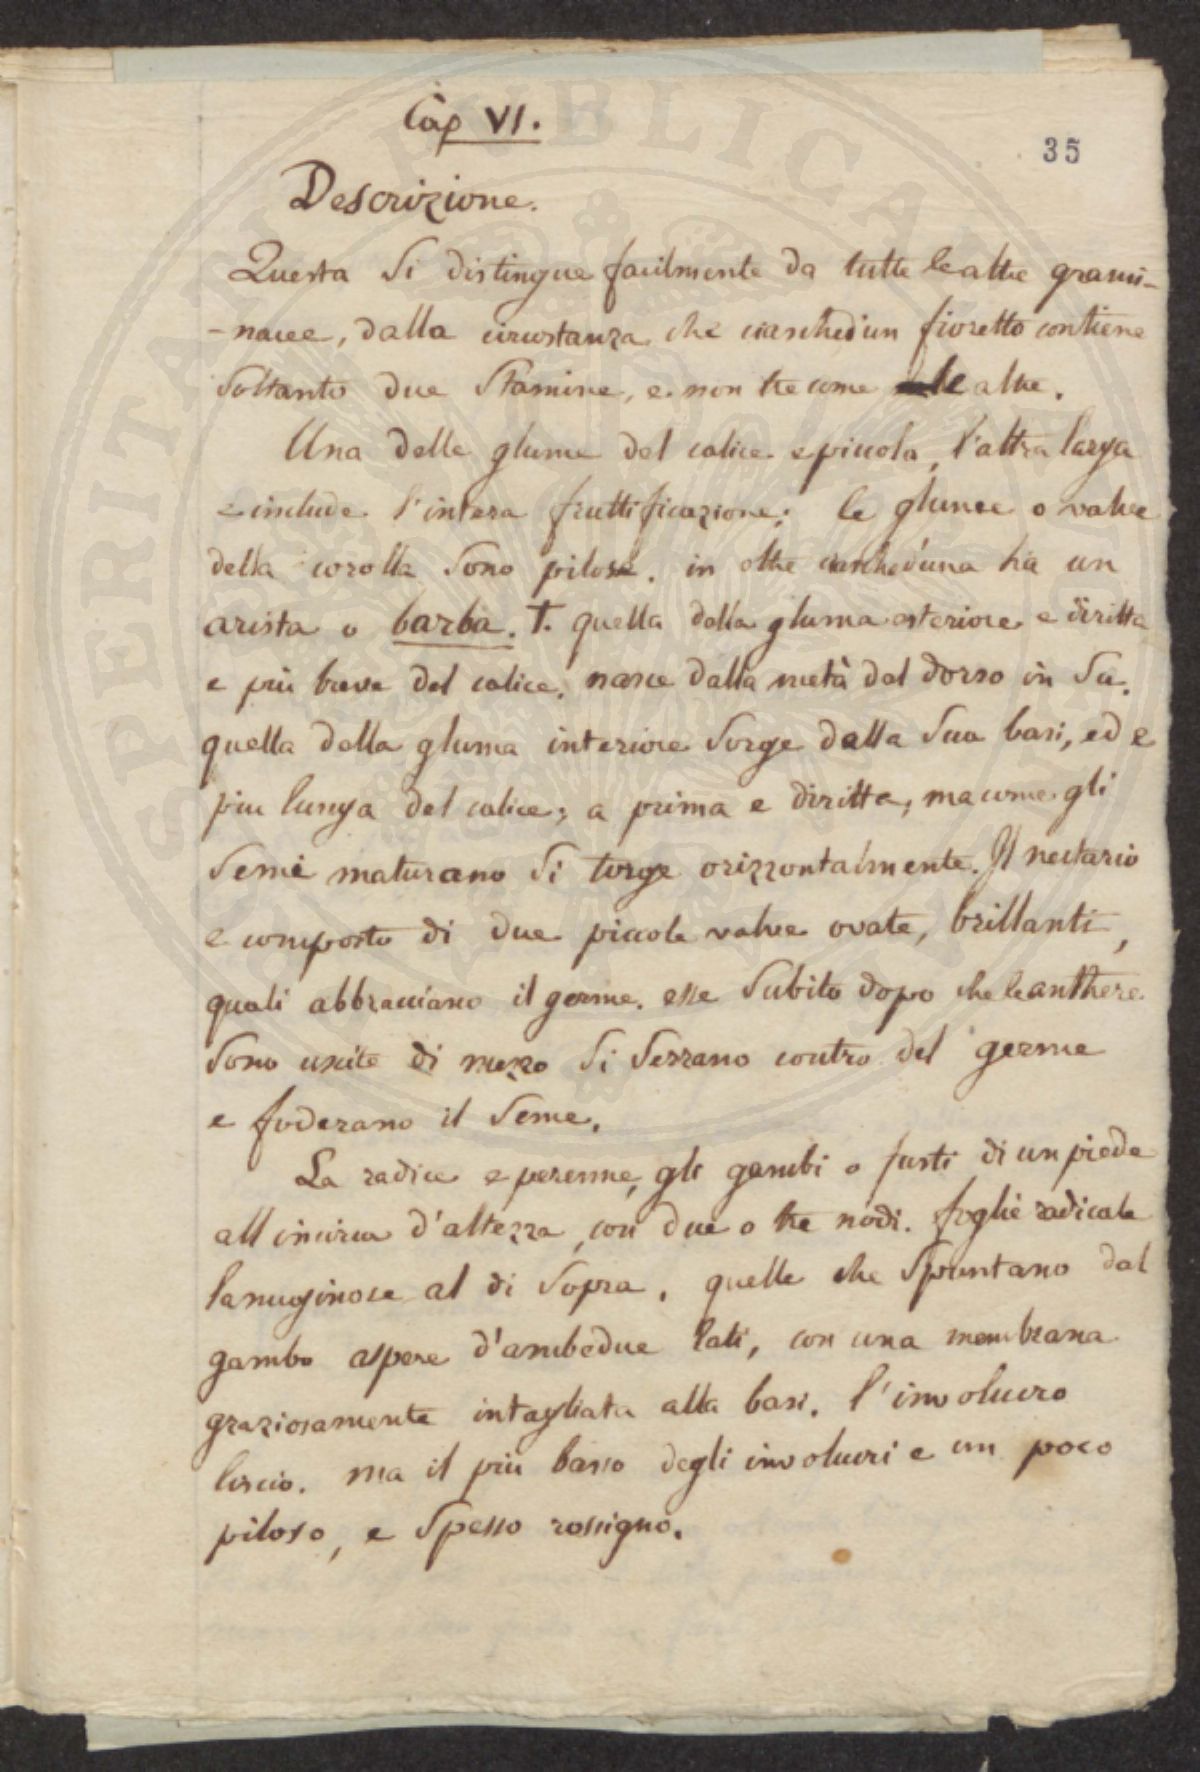 Cap VI.
35
Descrizione.
Questa si distingue facilmente da tutte le altre grami-
-nacee, dalla circostanza che ciasched'un fioretto contiene
soltanto due stamine, e non tre come le altre.
Una delle glume del calice e piccola, l'altra larga
e include l'intera fruttificazione; le glume o valve
della corolla sono pilose. in oltre ciasched'una ha un
arista o barba. T. quella della gluma esteriore e diritta
e più breve del calice, nasce dalla metà del dorso in su.
quella della gluma interiore sorge dalla sua basi, ed e
piu lunga del calice; a prima e diritta, ma come gli
semi maturano si torge orizzontalmente. Il nectario
e composto di due piccole valve ovate, brillanti,
quali abbracciano il germe. esse subito dopo che le anthere
sono uscite di mezzo si serrano contro del germe
e foderano il seme.
La radice e perenne, gli gambi o fusti di un piede
all incirca d'altezza, con due o tre nodi. foglie radicale
lanuginose al di sopra. quelle che spuntano dal
gambo aspere d'ambedue lati, con una membrana
graziosamente intagliata alla basi. l'involucro
liscio. ma il più basso degli involucri e un poco
piloso, e spesso rossigno.
SPERITAN PUBLICAM